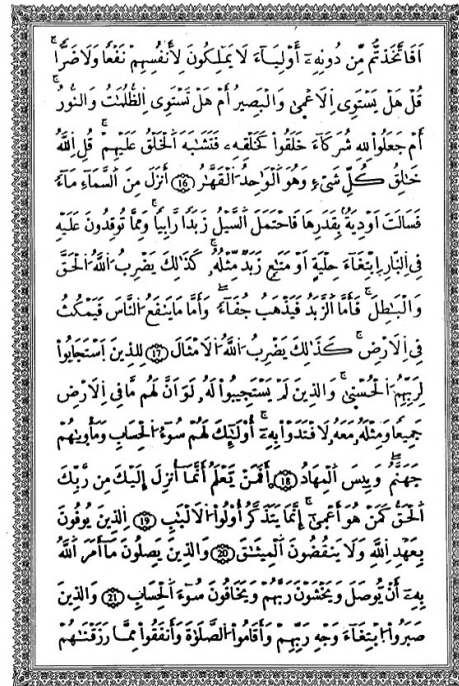 اَفَاتَّخَذتُّم مِّن دُونِهِۦٓ أَوْلِيَآءَ لَا يَمْلِكُونَ لِأَنفُسِهِمْ نَفْعًا وَلَا ضَرًّا
قُلْ هَلْ يَسْتَوِى اِلَاعْمِىٰ وَالْبَصِيرُ أَمْ هَلْ تَسْتَوِى اِلظُّلُمَٰتُ وَالنُّورُ
أَمْ جَعَلُوا۟ لِلهِ شُرَكَآءَ خَلَقُوا۟ كَخَلْقِهِۦ فَتَشَٰبَهَ اَلْخَلْقُ عَلَيْهِمْ قُلِ اِللَّهُ
خَٰلِقُ كُلِّ شَىْءٍ وَهُوَ اَلْوَٰحِدُ اُلْقَهَّٰرُ ١٦ أَنزَلَ مِنَ اَلسَّمَآءِ مَآءً
فَسَالَتَ اَوْدِيَةُۢ بِقَدَرِهَا فَاحْتَمَلَ اَلسَّيْلُ زَبَدًا رَّابِيًا وَمِمَّا تُوقِدُونَ عَلَيْهِ
فِى اِلنَّارِ اِبْتِغَآءَ حِلْيَةٍ اَوْ مَتَٰعٍ زَبَدٌ مِّثْلُهُۥ كَذَٰلِكَ يَضْرِبُ اُللَّهُ اُلْحَقَّ
وَالْبَٰطِلَ فَأَمَّا اَلزَّبَدُ فَيَذْهَبُ جُفَآءً وَأَمَّا مَا يَنفَعُ اُلنَّاسَ فَيَمْكُثُ
فِى اِلَارْضِ كَذَٰلِكَ يَضْرِبُ اُللَّهُ اُلَامْثَالَ ١٧ لِلذِينَ اَسْتَجَابُوا۟
لِرَبِّهِمُ اُلْحُسْنِىٰ وَالذِينَ لَمْ يَسْتَجِيبُوا۟ لَهُۥ لَوَ اَنَّ لَهُم مَّا فِى اِلَارْضِ
جَمِيعًا وَمِثْلَهُۥ مَعَهُۥ لَافْتَدَوْا۟ بِهِۦٓ أُوْلَٰٓئِكَ لَهُمْ سُوٓءُ اُلْحِسَابِ وَمَأْوِيٰهُمْ
جَهَنَّمُ وَبِيسَ اَلْمِهَادُ ١٨ أَفَمَنْ يَّعْلَمُ أَنَّمَآ أُنزِلَ إِلَيْكَ مِن رَّبِّكَ
اَلْحَقُّ كَمَنْ هُوَ أَعْمِىٰٓ إِنَّمَا يَتَذَكَّرُ أُوْلُوا۟ اُلَالْبَٰبِ ١٩ اِلذِينَ يُوفُونَ
بِعَهْدِ اِللَّهِ وَلَا يَنقُضُونَ اَلْمِيثَٰقَ ٢٠ وَالذِينَ يَصِلُونَ مَآ أَمَرَ اَللَّهُ
بِهِۦٓ أَنْ يُّوصَلَ وَيَخْشَوْنَ رَبَّهُمْ وَيَخَافُونَ سُوٓءَ اَلْحِسَابِ ٢١ وَالذِينَ
صَبَرُوا۟ اُبْتِغَآءَ وَجْهِ رَبِّهِمْ وَأَقَامُوا۟ اُلصَّلَوٰةَ وَأَنفَقُوا۟ مِمَّا رَزَقْنَٰهُمْ